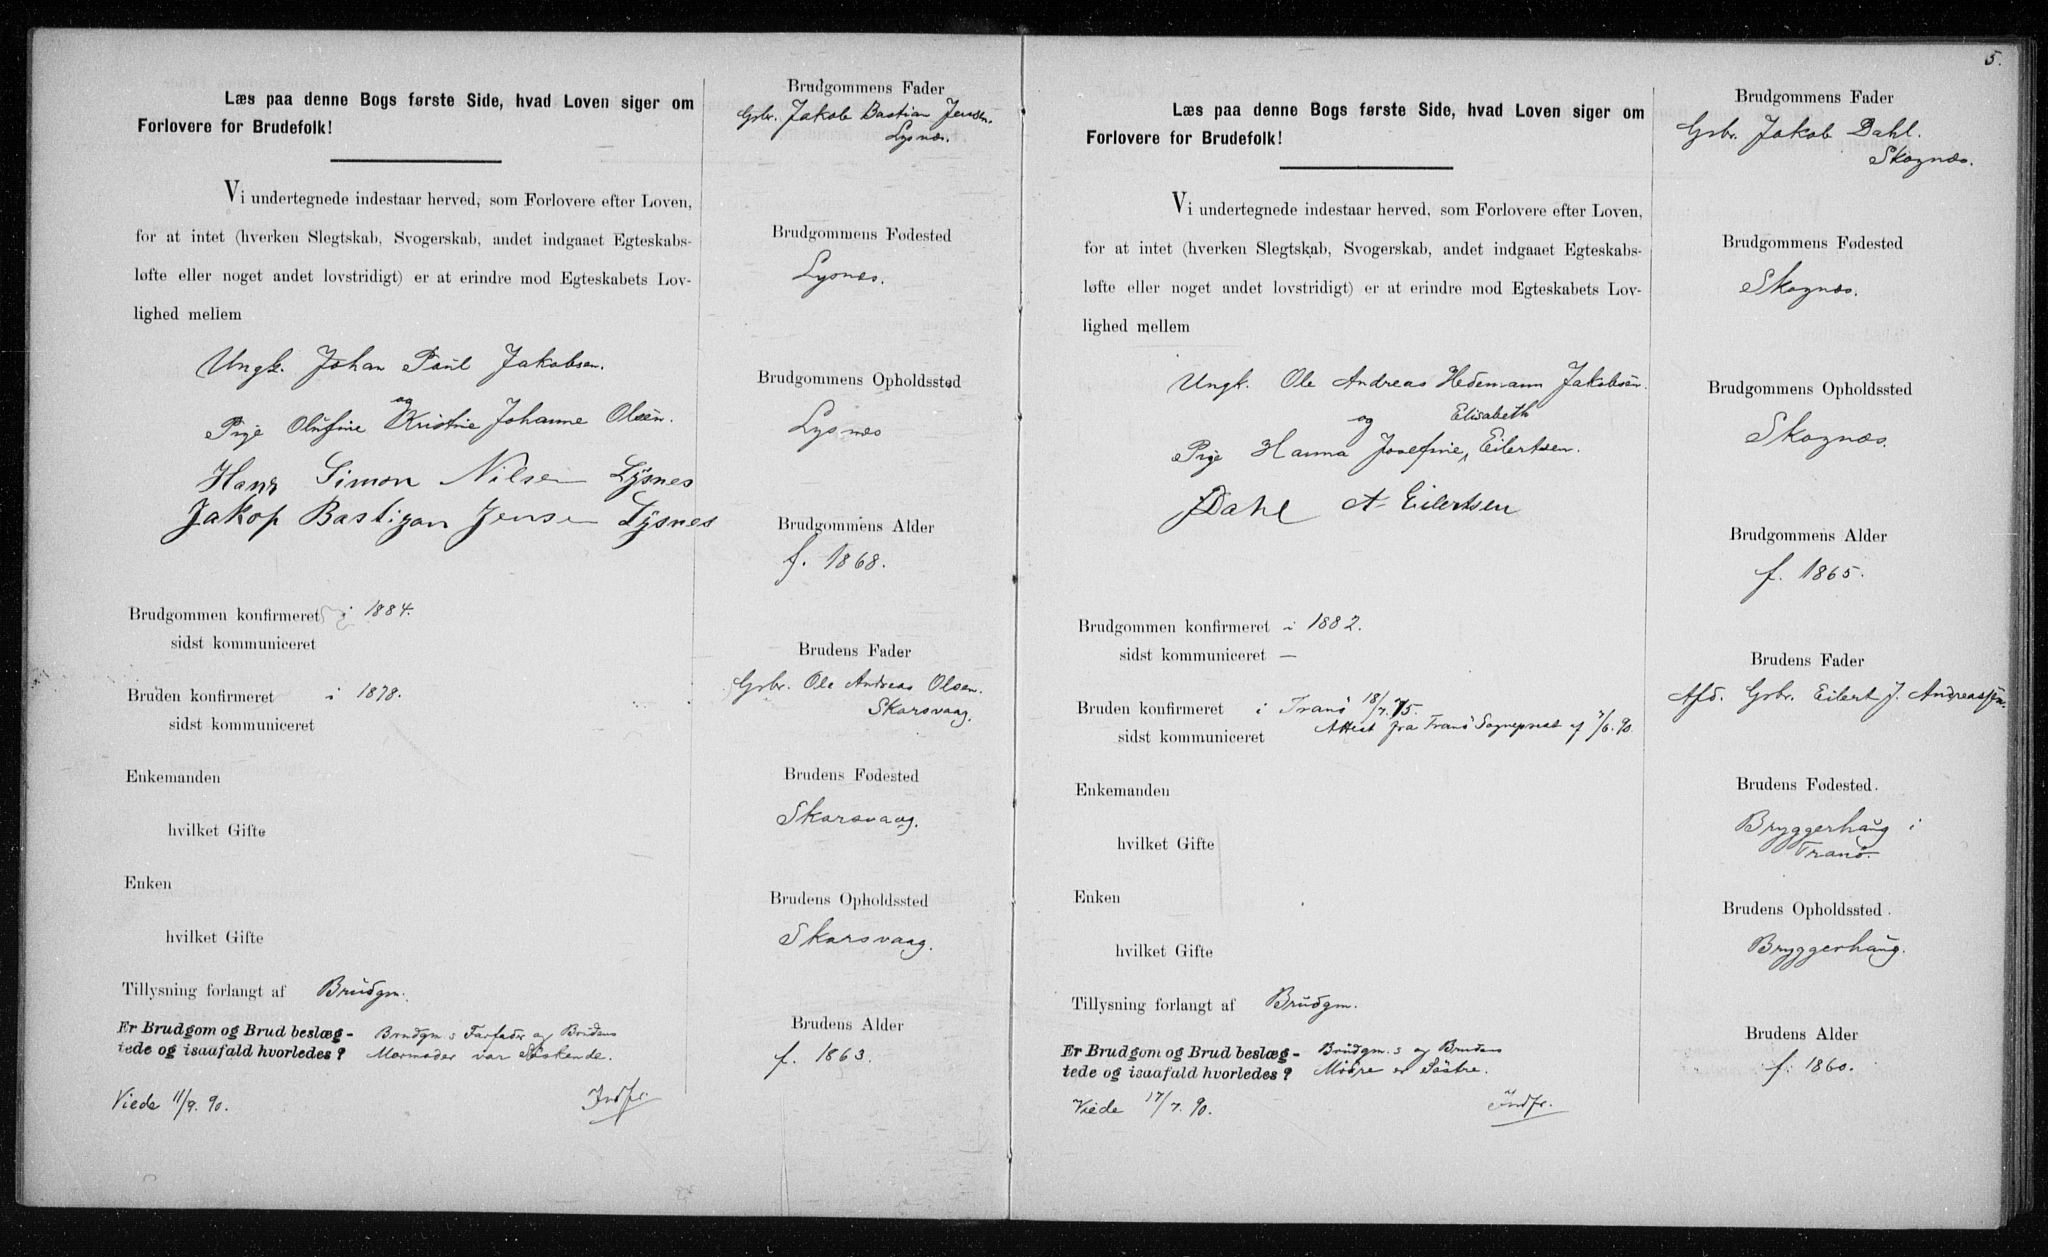 Læs paa denne Bogs første Side, hvad Loven siger om
Forlovere for Brudefolk!
Vi undertegnede indestaar herved, som Forlovere efter Loven,
for at intet (hverken Slegtskab, Svogerskab, andet indgaaet Egteskabs-
løfte eller noget andet lovstridigt) er at erindre mod Egteskabets Lov-
lighed mellem
Ungk. Johan Paul Jakobsen.
og
Pige Olufine Kristine Johanne Olsen.
Hans Simon Nilsen Lysnes
Jakop Bastijan Jensen Lysnes
Brudgommen konfirmeret i 1884.
sidst kommuniceret
Bruden konfirmeret i 1878.
sidst kommuniceret
Enkemanden
hvilket Gifte
Enken
hvilket Gifte
Tillysning forlangt af Brudgm.
Er Brudgom og Brud beslæg- Brudgm:s Farfader og Brudens
tede og isaafald hvorledes? Mormoder var Søskende.
Viede 11/9. 90. Indfr.
Brudgommens Fader
Gbr. Jakob Bastian Jensen.
Lysnæs.
Brudgommens Fødested
Lysnæs.
Brudgommens Opholdssted
Lysnæs
Brudgommens Alder
f. 1868.
Brudens Fader
Gbr. Ole Andreas Olsen.
Skarsvaag.
Brudens Fødested
Skarsvaag.
Brudens Opholdssted
Skarsvaag.
Brudens Alder
f. 1863.
5.
Læs paa denne Bogs første Side, hvad Loven siger om
Forlovere for Brudefolk!
Vi undertegnede indestaar herved, som Forlovere efter Loven,
for at intet (hverken Slegtskab, Svogerskab, andet indgaaet Egteskabs-
løfte eller noget andet lovstridigt) er at erindre mod Egteskabets Lov-
lighed mellem
Ungk. Ole Andreas Hedemann Jakobsen.
og Elisabeth
Pige Hanna Josefine, Eilertsen.
JDahl A Eilertsen
Brudgommen konfirmeret i 1882.
sidst kommuniceret —
Bruden konfirmeret i Tranö 18/7.75.
Attest fra Tranö Sogneprest af 7/6.90.
sidst kommuniceret
Enkemanden
hvilket Gifte
Enken
hvilket Gifte
Tillysning forlangt af Brudgm.
Er Brudgom og Brud beslæg- Brudgm.s og Brudens
tede og isaafald hvorledes? Mödre er Söstre.
Viede 17/7. 90. Indfr.
Brudgommens Fader
Gbr. Jakob Dahl.
Skognæs.
Brudgommens Fødested
Skognæs.
Brudgommens Opholdssted
Skognæs.
Brudgommens Alder
f. 1865.
Brudens Fader
Afd. Gbr. Eilert J. Andreassen.
Brudens Fødested.
Bryggerhaug i
Tranö.
Brudens Opholdssted.
Bryggerhaug.
Brudens Alder
f. 1860.